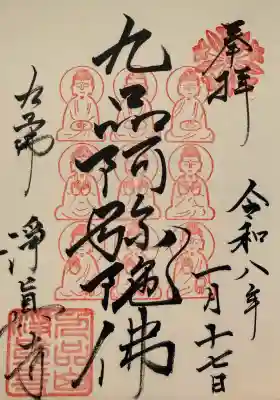 奉拝
令和八年
一月十七日
九品阿弥陀佛
九品佛
淨眞寺